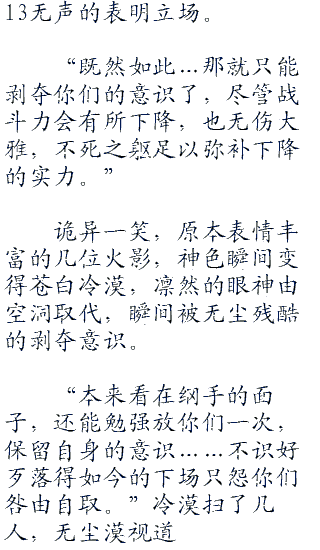 13无声的表明立场。
“既然如此…那就只能
剥夺你们的意识了，尽管战
斗力会有所下降，也无伤大
雅，不死之躯足以弥补下降
的实力。”
诡异一笑，原本表情丰
富的几位火影，神色瞬间变
得苍白冷漠，凛然的眼神由
空洞取代，瞬间被无尘残酷
的剥夺意识。
“本来看在纲手的面
子，还能勉强放你们一次，
保留自身的意识……不识好
歹落得如今的下场只怨你们
咎由自取。”冷漠扫了几
人，无尘漠视道